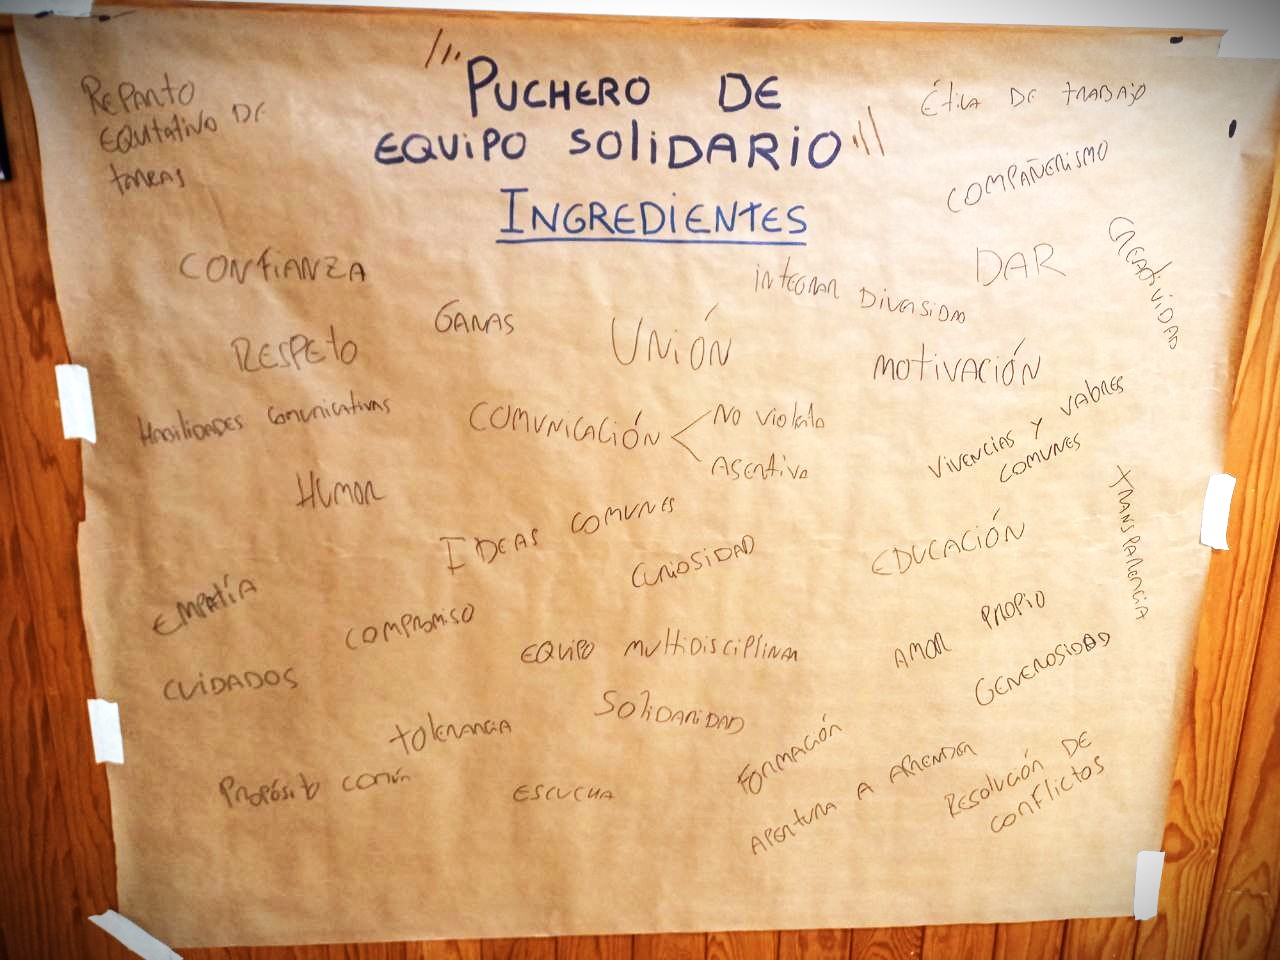 PUCHERO DE
EQUIPO SOLIDARIO
INGREDIENTES
REPARTO
EQUITATIVO DE
TAREAS
ÉTICA DE TRABAJO
COMPAÑERISMO
CREATIVIDAD
CONFIANZA
DAR
INTEGRAR DIVERSIDAD
GANAS
UNIÓN
RESPETO
MOTIVACIÓN
HABILIDADES COMUNICATIVAS
COMUNICACIÓN
NO VIOLENTA
ASERTIVA
VIVENCIAS Y VALORES
COMUNES
HUMOR
TRANSPARENCIA
IDEAS COMUNES
CURIOSIDAD
EDUCACIÓN
EMPATÍA
COMPROMISO
EQUIPO MULTIDISCIPLINAR
AMOR PROPIO
GENEROSIDAD
CUIDADOS
TOLERANCIA
SOLIDARIDAD
FORMACIÓN
PROPÓSITO COMÚN
ESCUCHA
APERTURA A APRENDER
RESOLUCIÓN DE
CONFLICTOS